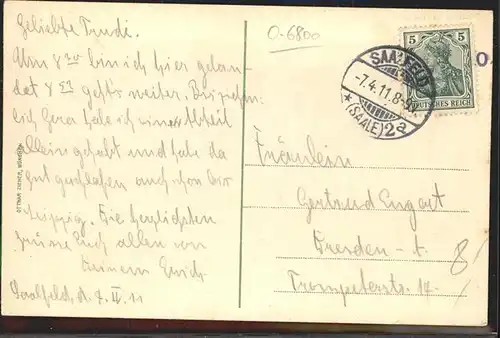 Geliebte Trudi.
Um 8 20 bin ich hier gelan-
det 8 53 geht's weiter.
lich Gera habe ich Abteil
alleine gehabt und habe da
gut geschlafen auch schon bis
Leipzig. Die herzlichsten
Grüsse Euch allen von
Deinem Erich
Saalfeld, d. 7. IV. 11
OTTMAR ZIEHER, MÜNCHEN
O-6800
SAALFELD
-7.4.11.8-9
*(SAALE)2a
5 5
DEUTSCHES REICH
O
Fräulein
Gertrud Engert
Dresden - A.
Trompeterstr. 14.
8/